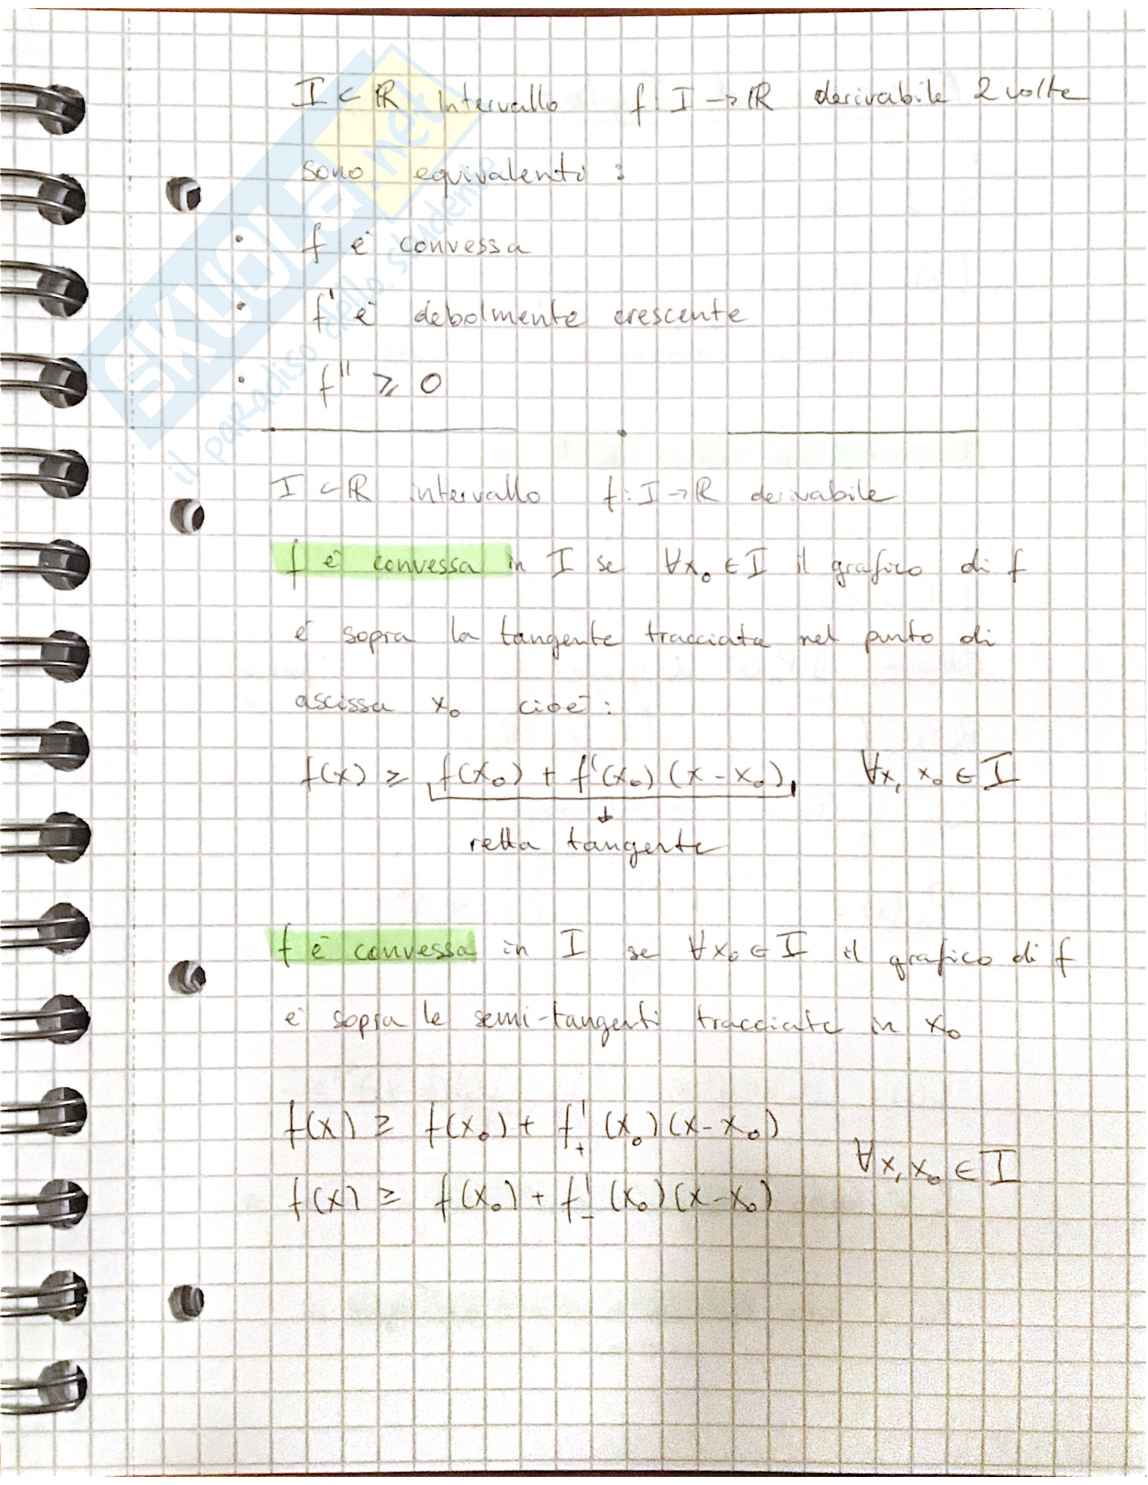 I ⊂ ℝ intervallo f: I → ℝ derivabile 2 volte
sono equivalenti:
• f è convessa
• f' è debolmente crescente
• f'' ≥ 0
I ⊂ ℝ intervallo f: I → ℝ derivabile
f è convessa in I se ∀x₀ ∈ I il grafico di f
è sopra la tangente tracciata nel punto di
ascissa x₀ cioè:
f(x) ≥ f(x₀) + f'(x₀)(x - x₀), ∀x, x₀ ∈ I
↓
retta tangente
f è convessa in I se ∀x₀ ∈ I il grafico di f
è sopra le semi-tangenti tracciate in x₀
f(x) ≥ f(x₀) + f'₊(x₀)(x - x₀)
∀x, x₀ ∈ I
f(x) ≥ f(x₀) + f'₋(x₀)(x - x₀)
SKUOLA.net
il paradiso dello studente